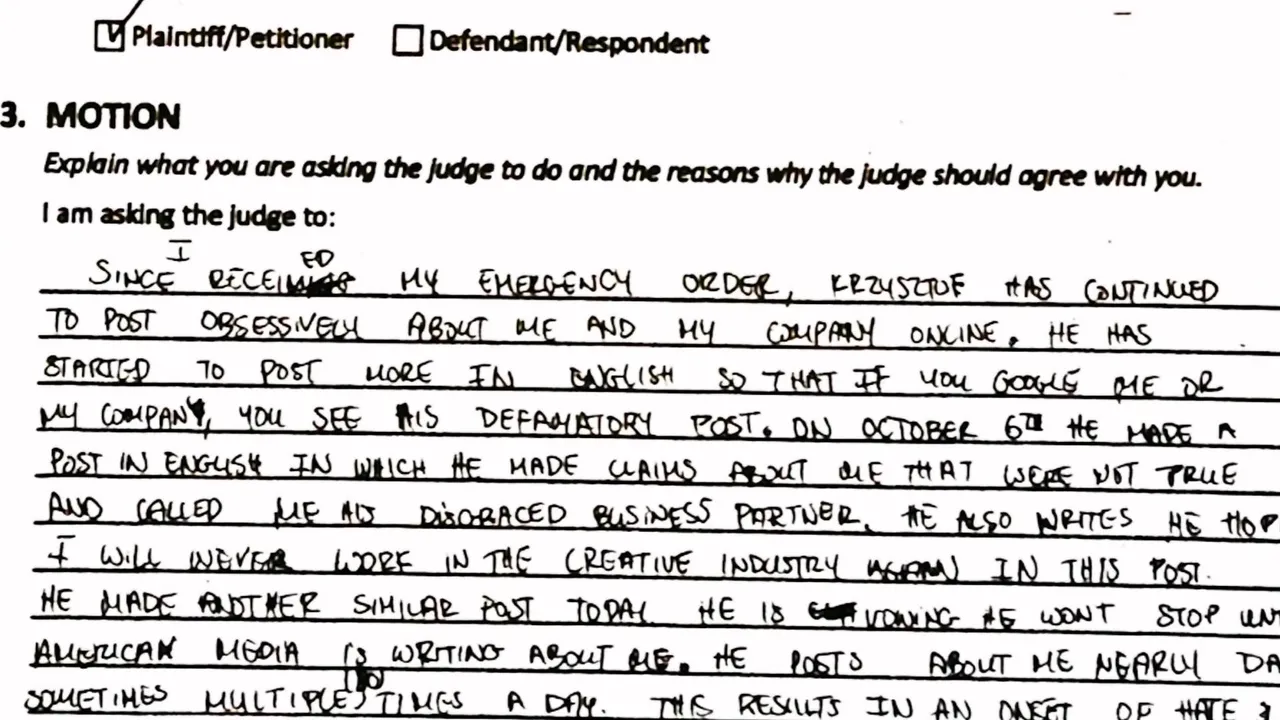 Plaintiff/Petitioner Defendant/Respondent
3. MOTION
Explain what you are asking the judge to do and the reasons why the judge should agree with you.
I am asking the judge to:
SINCE I RECEIVED MY EMERGENCY ORDER, KRZYSZTOF HAS CONTINUED
TO POST OBSESSIVELY ABOUT ME AND MY COMPANY ONLINE. HE HAS
STARTED TO POST MORE IN ENGLISH SO THAT IF YOU GOOGLE ME OR
MY COMPANY, YOU SEE HIS DEFAMATORY POST. ON OCTOBER 6TH HE MADE A
POST IN ENGLISH IN WHICH HE MADE CLAIMS ABOUT ME THAT WERE NOT TRUE
AND CALLED ME HIS DISGRACED BUSINESS PARTNER. HE ALSO WRITES HE HOP
I WILL NEVER WORK IN THE CREATIVE INDUSTRY AGAIN IN THIS POST.
HE MADE ANOTHER SIMILAR POST TODAY HE IS VOWING HE WONT STOP UNT
AMERICAN MEDIA IS WRITING ABOUT ME. HE POSTS ABOUT ME NEARLY DA
SOMETIMES MULTIPLE TIMES A DAY. THIS RESULTS IN AN ONSET OF HATE